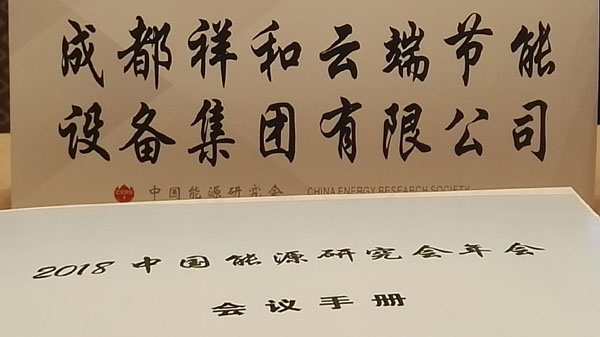 成都祥和云端节能
设备集团有限公司
中国能源研究会 CHINA ENERGY RESEARCH SOCIETY
2018中国能源研究会年会
会议手册